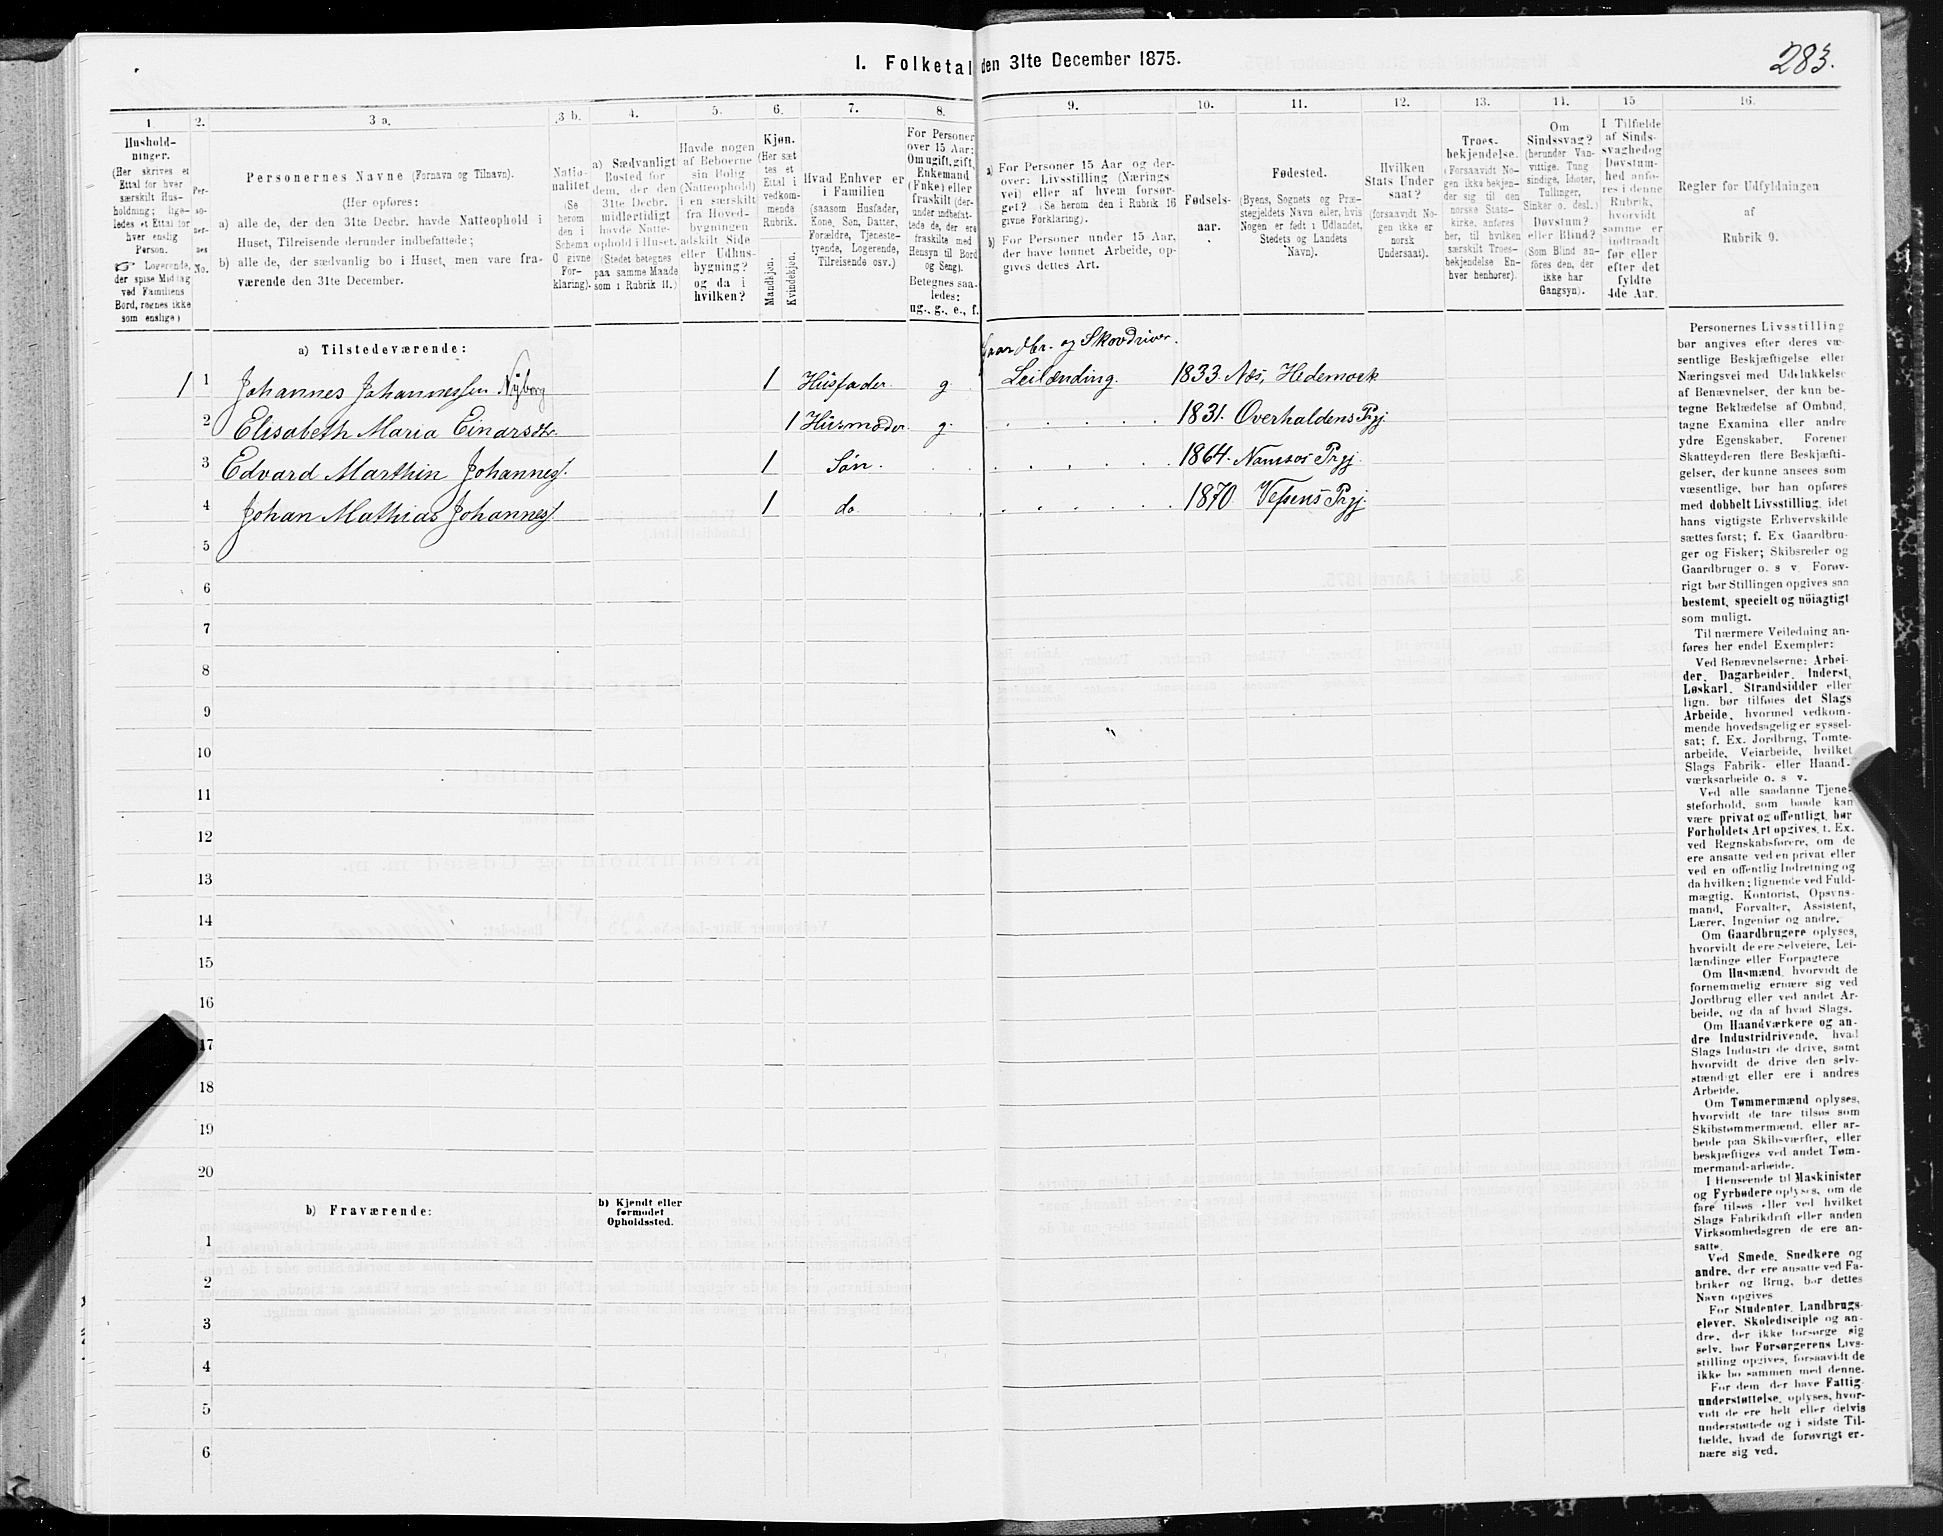 I. Folketal den 31te December 1875.
283.
1.
2.
3 a.
3 b.
4.
5.
6.
7.
8.
9.
10.
11.
12.
13.
14.
15
16.
Hushold-
ninger.
(Her skrives et
Ettal for hver
særskilt Hus-
holdning; lige-
ledes et Ettal for
hver enslig
Person.
☞ Logerende,
der spise Middag
ved Familiens
Bord, regnes ikke
som enslige)
Per-
so-
ner-
nes
No.
Personernes Navne (Fornavn og Tilnavn).
(Her opføres:
a) alle de, der den 31te Decbr. havde Natteophold i
Huset, Tilreisende derunder indbefattede;
b) alle de, der sædvanlig bo i Huset, men vare fra-
værende den 31te December.
Natio-
nalitet
(Se
herom
den i
Schema
O givne
For-
klaring).
a) Sædvanligt
Bosted for
dem, der den
31te Decbr.
midlertidigt
havde Natte-
ophold i Huset.
(Stedet betegnes
paa samme Maade
som i Rubrik 11.)
Havde nogen
af Beboerne
sin Bolig
(Natteophold)
i en særskilt
fra Hoved-
bygningen
adskilt Side
eller Udhus-
bygning?
og da i
hvilken?
Kjøn.
(Her sæt-
tes et
Ettal i
vedkom-
mende
Rubrik.
Mandkjøn.
Kvindekjøn.
Hvad Enhver er
i Familien
(saasom Husfader,
Kone, Søn, Datter,
Forældre, Tjeneste-
tyende, Logerende,
Tilreisende osv.)
For Personer
over 15 Aar:
Om ugift, gift,
Enkemand
(Enke) eller
fraskilt (der-
under indbefat-
tede de, der ere
fraskilte med
Hensyn til Bord
og Seng).
Betegnes saa-
ledes:
ug., g., e., f.
a) For Personer 15 Aar og der-
over: Livsstilling (Nærings
vei) eller af hvem forsør-
get? (Se herom den i Rubrik 16
givne Forklaring).
b) For Personer under 15 Aar,
der have lønnet Arbeide, op-
gives dettes Art.
Fødsels-
aar.
Fødested.
(Byens, Sognets og Præ-
stegjeldets Navn eller, hvis
Nogen er født i Udlandet,
Stedets og Landets
Navn).
Hvilken
Stats Under
saat?
(forsaavidt No-
gen ikke er
norsk
Undersaat).
Troes-
bekjendelse.
(Forsaavidt No-
gen ikke bekjen-
der sig til den
norske Stats-
kirke, anføres
her, til hvilken
særskilt Troes-
bekjendelse En-
hver henhører).
Om
Sindssvag?
(herunder Van-
vittige, Tung
sindige, Idioter,
Tullinger,
Sinker o. desl.)
Døvstum?
eller Blind?
(Som Blind an-
føres den, der
ikke har
Gangsyn).
I Tilfælde
af Sinds-
svaghed og
Døvstum-
hed anfø-
res i denne
Rubrik,
hvorvidt
samme er
indtraadt
før eller
efter det
fyldte
4de Aar.
Regler for Udfyldningen
af
Rubrik 9.
a) Tilstedeværende:
Gaardbr. og Skovdriver.
1 1 Johannes Johannessen Nyborg 1 Husfader. g Leilænding. 1833. Næs, Hedemark
2 Elisabeth Maria Einarsdtr. 1 Husmoder. g. 1831. Overhaldens Prgj.
3 Edvard Marthin Johannes. 1 Søn. 1864. Namsos Prgj.
4 Johan Mathias Johannes. 1 do. 1870. Vefsens Prgj.
5
6
7
8
9
10
11
12
13
14
15
16
17
18
19
20
b) Fraværende:
b) Kjendt eller
formodet
Opholdssted.
1
2
3
4
5
6
Personernes Livsstilling
bør angives efter deres væ-
sentlige Beskjæftigelse eller
Næringsvei med Udelukkelse
af Benævnelser, der kun be-
tegne Beklædelse af Ombud,
tagne Examina eller andre
ydre Egenskaber. Forener
Skatteyderen flere Beskjæfti-
gelser, der kunne ansees som
væsentlige, bør han opføres
med dobbelt Livsstilling, idet
hans vigtigste Erhvervskilde
sættes først; f. Ex Gaardbru-
ger og Fisker; Skibsreder og
Gaardbruger o. s v. Forøv-
rigt bør Stillingen opgives saa
bestemt, specielt og nöiagtigt
som muligt.
Til nærmere Veiledning an-
føres her endel Exempler:
Ved Benævnelserne: Arbei-
der, Dagarbeider, Inderst,
Løskarl, Strandsidder eller
lign. bør tilføies det Slags
Arbeide, hvormed vedkom-
mende hovedsagelig er syssel-
sat; f. Ex. Jordbrug, Tomte-
arbeide, Veiarbeide, hvilket
Slags Fabrik- eller Haand-
værksarbeide o. s v.
Ved alle saadanne Tjene-
steforhold, som baade kan
være privat og offentligt, bør
Forholdets Art opgives, t. Ex.
ved Regnskabsførere, om de
ere ansatte ved en privat eller
ved en offentlig Indretning og
da hvilken; lignende ved Fuld-
mægtig, Kontorist, Opsyns-
mand, Forvalter, Assistent,
Lærer, Ingeniør og andre.
Om Gaardbrugere oplyses,
hvorvidt de ere Selveiere, Lei-
lændinge eller Forpagtere
Om Husmænd, hvorvidt de
fornemmelig ernære sig ved
Jordbrug eller ved andet Ar-
beide, og da af hvad Slags.
Om Haandværkere og an-
dre Industridrivende, hvad
Slags Industri de drive, samt
hvorvidt de drive den selv-
stændigt eller ere i andres
Arbeide.
Om Tømmermænd oplyses,
hvorvidt de fare tilsøs som
Skibstømmermænd, eller ar-
beide paa Skibsværfter, eller
beskjæftiges ved andet Tøm-
mermand-arbeide.
I Henseende til Maskinister
og Fyrbødere oplyses, om de
fare tilsøs eller ved hvilket
Slags Fabrikdrift eller anden
Virksomhedsgren de ere an-
satte.
Ved Smede, Snedkere og
andre, der ere ansatte ved Fa-
briker og Brug, bør dettes
Navn opgives
For Studenter, Landbrugs-
elever, Skoledisciple og an-
dre, der ikke forsørge sig
selv, bør Forsørgerens Livs-
stilling opgives, forsaavidt de
ikke bo sammen med denne.
For dem, der have Fattig-
understøttelse, oplyses, hvor-
vidt de ere helt eller delvis
understøttede og i sidste Til-
fælde, hvad de forøvrigt er-
nære sig ved.